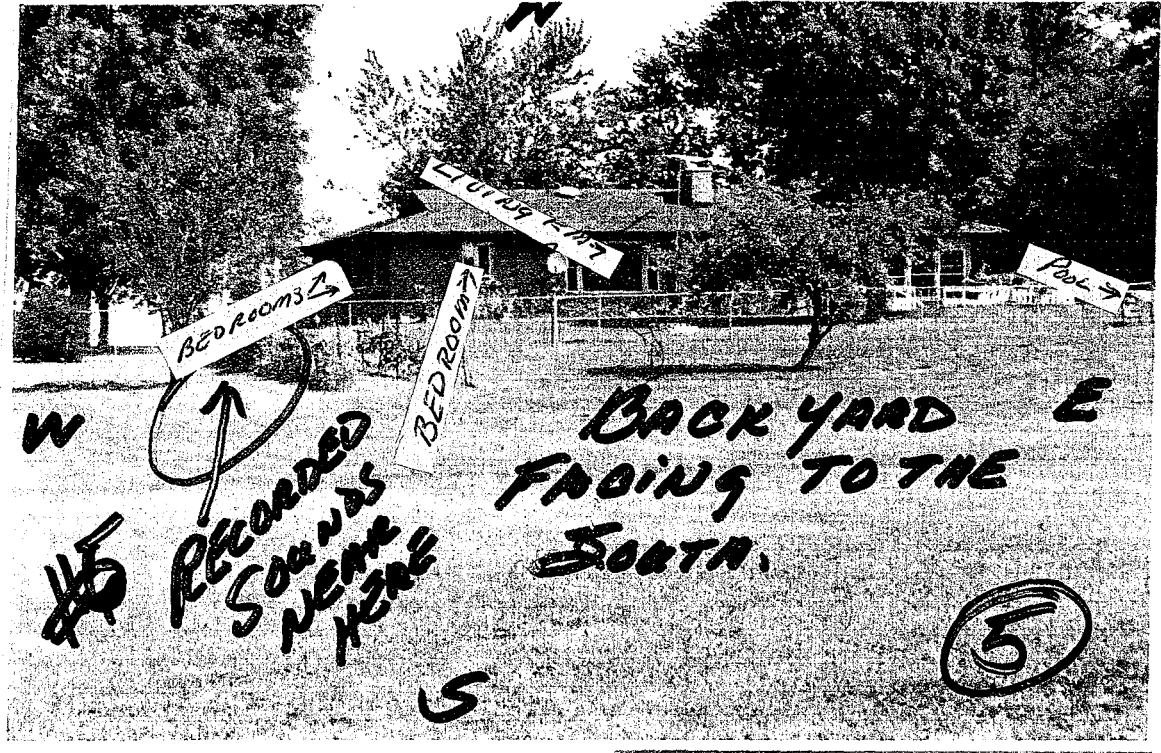 N
LIVING RM
BEDROOMS
BEDROOM
POOL
W
E
BACK YARD
FACING TO THE
SOUTH.
RECORDED
SOUNDS
NEAR
HERE
#5
S
5